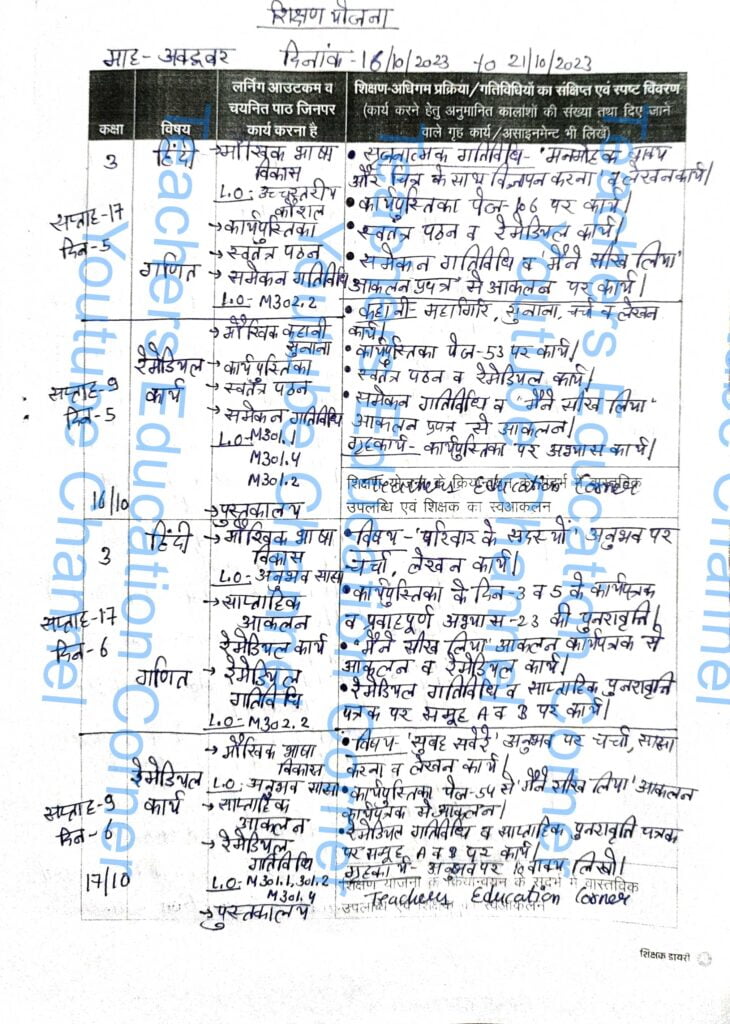 शिक्षण योजना
माह- अक्टूबर दिनांक-16/10/2023 to 21/10/2023
कक्षा
विषय
लर्निंग आउटकम व
चयनित पाठ जिनपर
कार्य करना है
शिक्षण-अधिगम प्रक्रिया/गतिविधियों का संक्षिप्त एवं स्पष्ट विवरण
(कार्य करने हेतु अनुमानित कालांशों की संख्या तथा दिए जाने
वाले गृह कार्य/असाइनमेंट भी लिखें)
3
सप्ताह-17
दिन-5
हिंदी
गणित
→मौखिक भाषा
विकास
L.O-
कौशल
→कार्यपुस्तिका
→स्वतंत्र पठन
→समेकन गतिविधि
L.O- M302.2
• सृजनात्मक गतिविधि- 'मनमोहक
और चित्र के साथ विज्ञापन करना' व लेखन कार्य।
• कार्यपुस्तिका पेज-106 पर कार्य।
• स्वतंत्र पठन व रेमेडियल कार्य।
• समेकन गतिविधि व 'मैंने सीख लिया'
आकलन प्रपत्र से आकलन पर कार्य।
सप्ताह-9
दिन-5
16/10
रेमेडियल
कार्य
→मौखिक कहानी
सुनाना
→कार्यपुस्तिका
→स्वतंत्र पठन
→समेकन गतिविधि
L.O-M301.1
M301.4
M301.2
→पुस्तकालय
• कहानी- महागिरि, सुनाना, चर्चा व लेखन
कार्य।
• कार्यपुस्तिका पेज-53 पर कार्य।
• स्वतंत्र पठन व रेमेडियल कार्य।
• समेकन गतिविधि व "मैंने सीख लिया"
आकलन प्रपत्र से आकलन।
गृहकार्य- कार्यपुस्तिका पर अभ्यास कार्य।
शिक्षण योजना के क्रियान्वयन के संदर्भ में वास्तविक
Teachers Education Corner
उपलब्धि एवं शिक्षक का स्वआकलन
3
सप्ताह-17
दिन-6
हिंदी
गणित
→मौखिक भाषा
विकास
L.O- अनुभव साझा
→साप्ताहिक
आकलन
रेमेडियल कार्य
→रेमेडियल
गतिविधि
L.O- M302.2
• विषय-'परिवार के सदस्यों' अनुभव पर
चर्चा, लेखन कार्य।
•कार्यपुस्तिका के दिन-3 व 5 के कार्यपत्रक
व प्रवाहपूर्ण अभ्यास-23 की पुनरावृत्ति।
• 'मैंने सीख लिया' आकलन कार्यपत्रक से
आकलन व रेमेडियल कार्य।
• रेमेडियल गतिविधि व साप्ताहिक पुनरावृति
पत्रक पर समूह A व B पर कार्य।
सप्ताह-9
दिन-6
17/10
रेमेडियल
कार्य
→मौखिक भाषा
विकास
L.O- अनुभव साझा
→साप्ताहिक
आकलन
→रेमेडियल
गतिविधि
L.O-M301.1,301.2
M301.4
→पुस्तकालय
•विषय- 'सुबह सवेरे' अनुभव पर चर्चा, साझा
करना व लेखन कार्य।
•कार्यपुस्तिका पेज-54 से 'मैंने सीख लिया' आकलन
कार्यपत्रक से आकलन।
•रेमेडियल गतिविधि व साप्ताहिक पुनरावृति पत्रक
पर समूह A व B पर कार्य।
गृहकार्य- अनुभव पर 10 वाक्य लिखो।
शिक्षण योजना के क्रियान्वयन के संदर्भ में वास्तविक
Teachers Education Corner
उपलब्धि एवं शिक्षक का स्वआकलन
शिक्षक डायरी
Teachers Education Corner
Youtube Channel
Teachers Education Corner
Youtube Channel
Teachers Education Corner
Youtube Channel